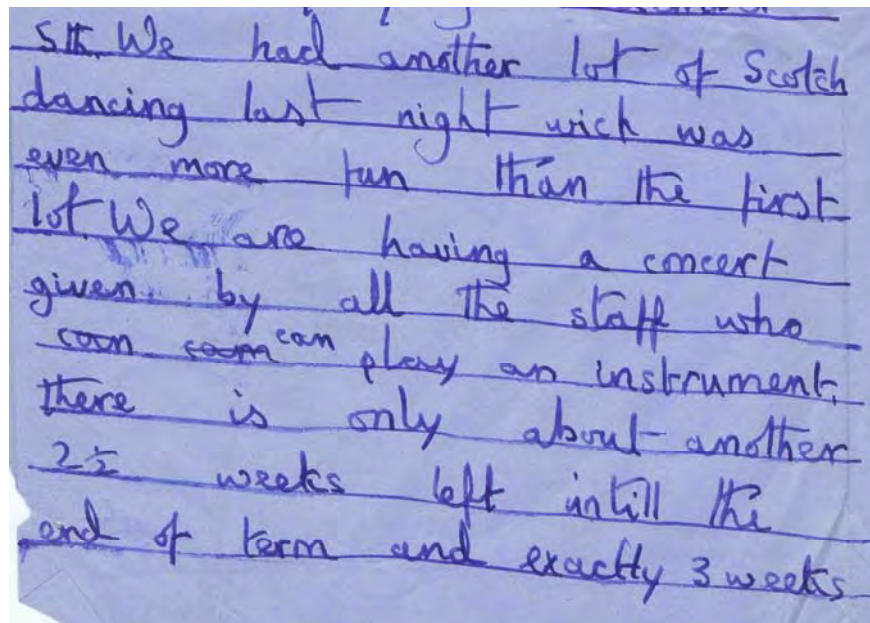 5th. We had another lot of Scotch
dancing last night wich was
even more fun than the first
lot. We are having a concert
given by all the staff who
coan coam can play an instrument.
there is only about another
2½ weeks left intill the
end of term and exactly 3 weeks